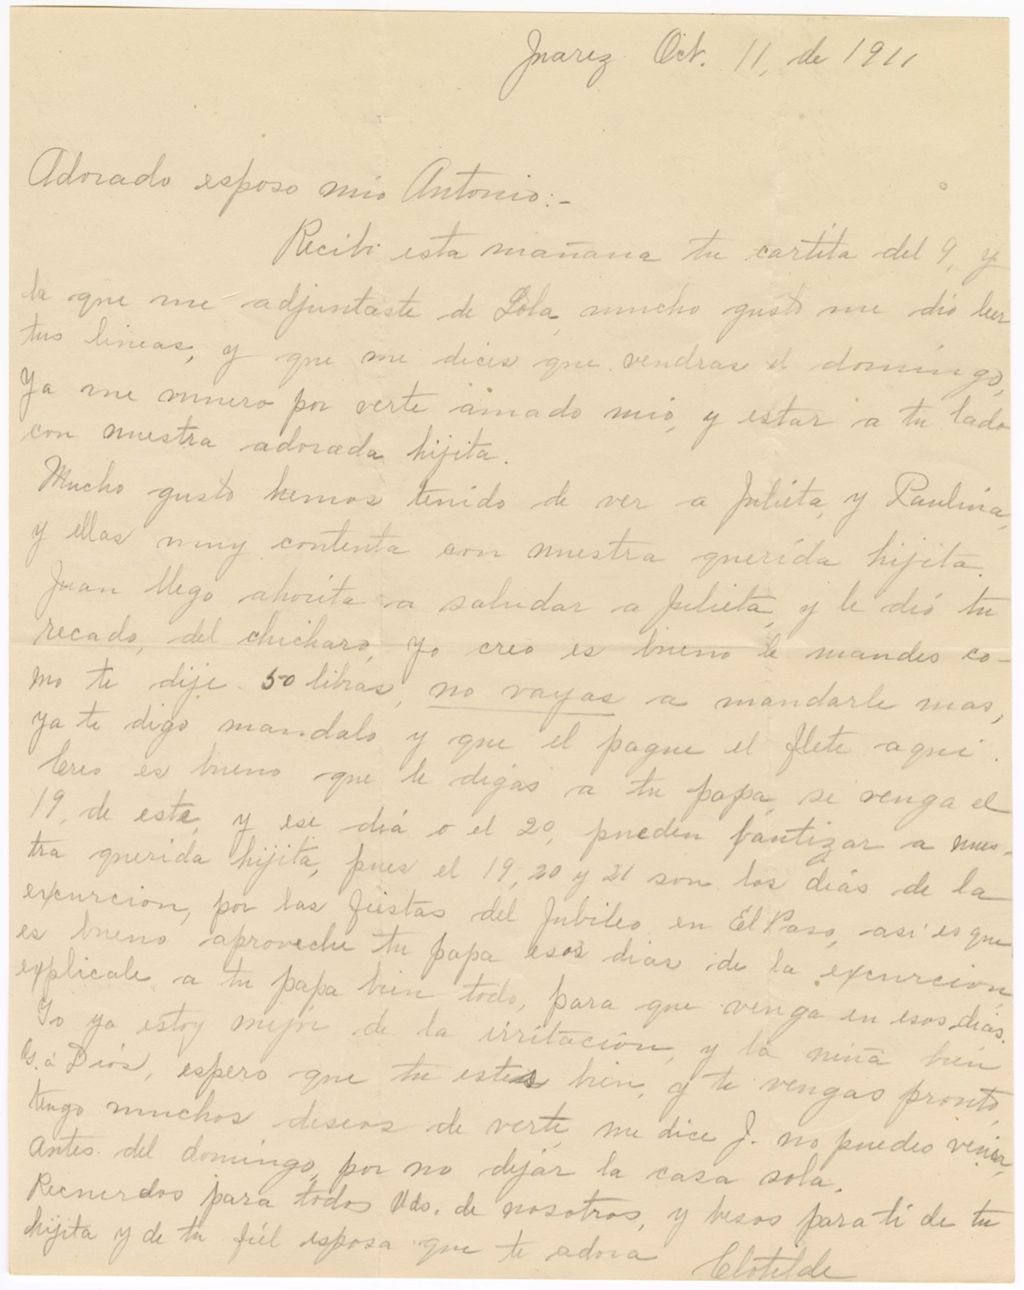 Juarez Oct. 11, de 1911
Adorado esposo mio Antonio:-
Recibi esta mañana tu cartita del 9, y
la que me adjuntaste de Lola, mucho gusto me dió leer
tus lineas, y que me dices que vendras el domingo,
Ya me muero por verte amado mio, y estar a tu lado
con nuestra adorada hijita.
Mucho gusto hemos tenido de ver a Julieta, y Paulina,
y ellas muy contenta con nuestra querida hijita.
Juan llego ahorita a saludar a Julieta, y le dió tu
recado, del chicharo, Yo creo es bueno le mandes co-
mo te dije 50 libras, no vayas a mandarle mas,
ya te digo mandalo y que el pague el flete aqui.
Creo es bueno que le digas a tu papa, se venga el
19, de este, y ese diá o el 20, pueden bautizar a nues-
tra querida hijita, pues el 19, 20 y 21 son los diás de la
excurcion, por las fiestas del Jubileo en El Paso, asi es que
es bueno aproveche tu papa esos dias de la excurción,
explicale a tu papa bien todo, para que venga en esos diás.
Yo ya estoy mejor de la irritación, y la niña bien
G. á Diós, espero que tu estes bien, y te vengas pronto,
tengo muchos deseos de verte, me dice J. no puedes venir,
antes del domingo, por no dejár la casa sola.
Recuerdos para todos Uds. de nosotros, y besos para ti de tu
hijita y de tu fiél esposa que te adora
Clotilde